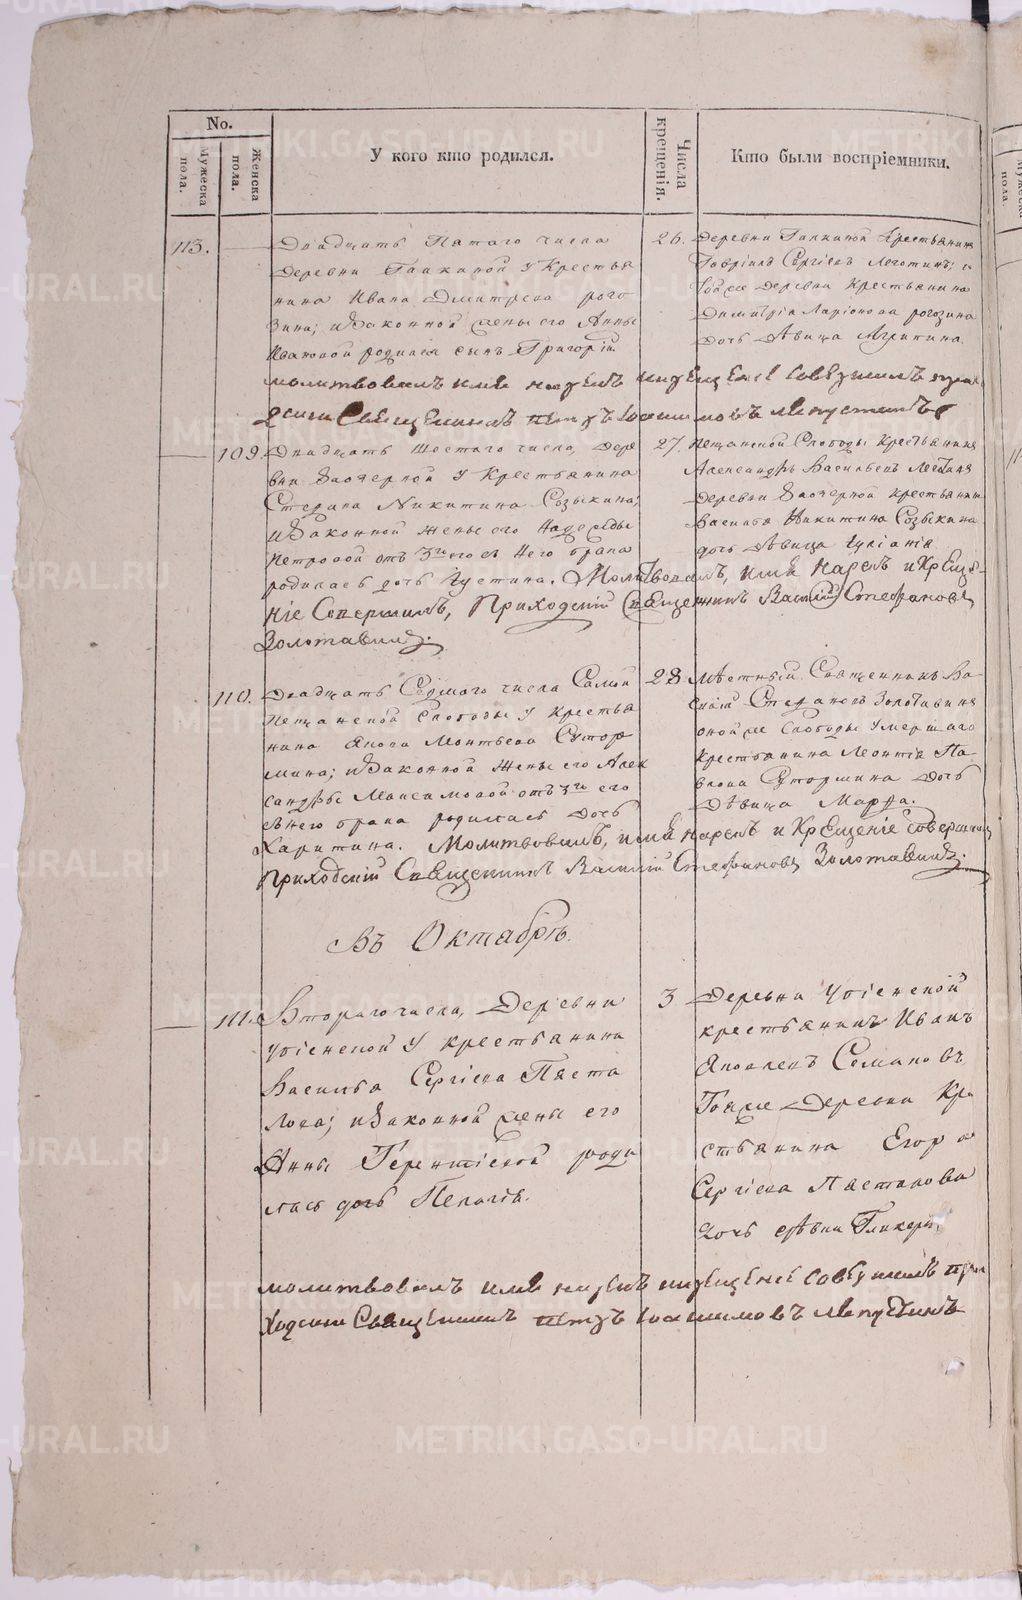 No.
Мужеска пола.
Женска пола.
У кого кто родился.
Числа крещенія.
Кто были воспріемники.
113.
Двадцать Пятаго числа
деревни Галкиной у Крестья
нина Ивана Дмитрева рого
зина; и Законной жены его Анны
Ивановой родился сынъ Григорій
26.
Деревни Галкиной Крестьянинъ
Гавріилъ Сергіевъ Леготинъ; и
Тойже деревни Крестьянина
Димитрія Ларіонова рогозина
дочь Дѣвица Агрипина.
молитвовалъ имя нарекъ и крещеніе совершилъ при
ходскій Священникъ Петръ Іоакимовъ
109.
Двадцать Шестаго числа, дере
вни Заозерной у Крестьянина
Стефана Никитина Созыкина;
и Законной жены его Надежды
Петровой отъ 3го его съ Него брака
родилась дочь Іустина. Молитвовалъ, имя нарекъ и Креще-
ніе Совершилъ, Приходскій Священникъ Василій Стефановъ
Золотавинъ.
27.
Пещанской Слободы Крестьянинъ
Александръ Васильевъ
деревни Заозерной крестьянина
Василья Никитина Созыкина
дочь Дѣвица Іуліанія
110.
Двадцать Седмаго числа Самой
Пещанской Слободы у крестья
нина Якова Матвеева Сутор
мина; и Законной жены его Алек
сандры Максимовой отъ 3го его
съ Него брака родилась дочь
Харитина. Молитвовалъ, имя нарекъ и Крещеніе совершилъ
Приходскій Священникъ Василій Стефановъ Золотавинъ.
28
Мѣстный Священникъ Ва
силій Стефановъ Золотавинъ
оной же Слободы умершаго
Крестьянина Леонтія Па
влова Сутормина дочь
Дѣвица Марфа.
Въ Октябрѣ.
111.
Втораго числа, Деревни
у крестьянина
Василья Сергіева Песта
лова; и Законной жены его
Анны Терентіевой роди
лась дочь Пелагія.
3
Деревни
крестьянинъ Иванъ
Яковлевъ
Тояже Деревни Кре
стьянина Егора
Сергіева
дочь дѣвица Гликерія
молитвовалъ имя нарекъ и крещеніе совершилъ при
ходскій Священникъ Петръ Іоакимовъ